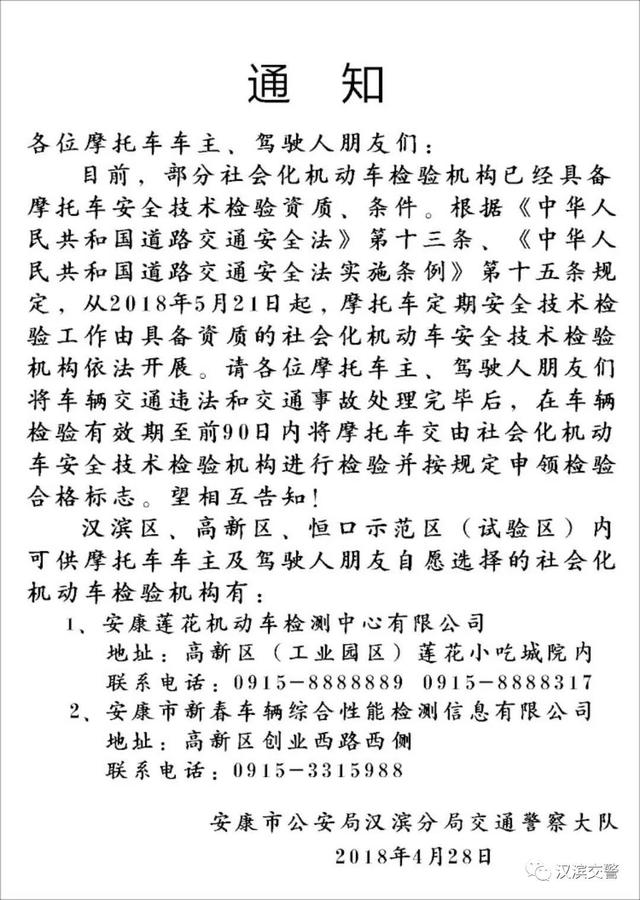 通 知
各位摩托车车主、驾驶人朋友们：
目前，部分社会化机动车检验机构已经具备
摩托车安全技术检验资质、条件。根据《中华人
民共和国道路交通安全法》第十三条、《中华人
民共和国道路交通安全法实施条例》第十五条规
定，从2018年5月21日起，摩托车定期安全技术检
验工作由具备资质的社会化机动车安全技术检验
机构依法开展。请各位摩托车主、驾驶人朋友们
将车辆交通违法和交通事故处理完毕后，在车辆
检验有效期至前90日内将摩托车交由社会化机动
车安全技术检验机构进行检验并按规定申领检验
合格标志。望相互告知！
汉滨区、高新区、恒口示范区（试验区）内
可供摩托车车主及驾驶人朋友自愿选择的社会化
机动车检验机构有：
1、安康莲花机动车检测中心有限公司
地址：高新区（工业园区）莲花小吃城院内
联系电话：0915-8888889 0915-8888317
2、安康市新春车辆综合性能检测信息有限公司
地址：高新区创业西路西侧
联系电话：0915-3315988
安康市公安局汉滨分局交通警察大队
2018年4月28日
汉滨交警